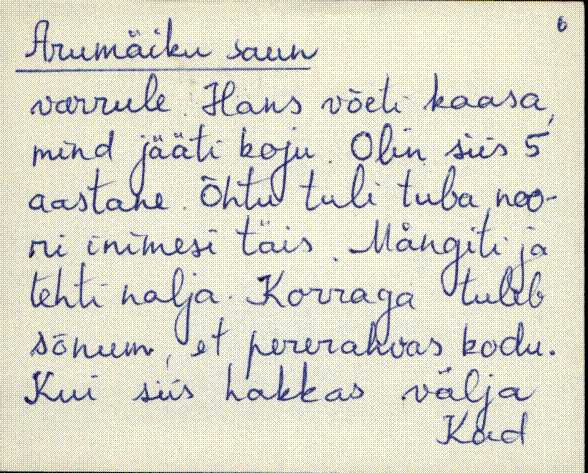 6
Arumäiku saun
varrule. Hans võeti kaasa,
mind jääti koju. Olin siis 5
aastane. Õhtu tuli tuba noo-
ri inimesi täis. Mängiti ja
tehti nalja. Korraga tuleb
sõnum, et pererahvas kodu.
Kui siis hakkas välja
Kad